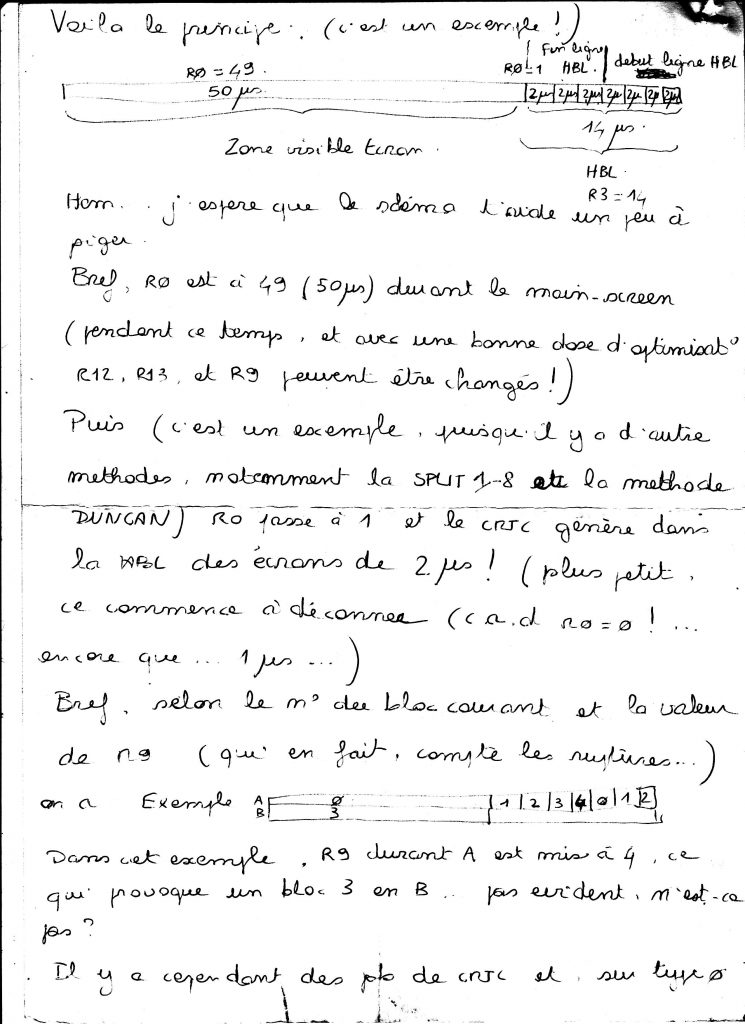 Voila le principe. (c'est un exemple !)
Fin ligne
RØ = 49. RØ=1 HBL. debut ligne HBL
50 µs. 2µ 2µ 2µ 2µ 2µ 2µ 2µ
14 µs.
Zone visible Ecran.
HBL.
R3 = 14
Hom.. j'espere que le schéma t'aide un peu à
piger.
Bref, RØ est à 49 (50µs) durant le main-screen
(pendant ce temps, et avec une bonne dose d'optimisat°
R12, R13, et R9 peuvent être changés !)
Puis (c'est un exemple, puisqu'il y a d'autre
methodes, notamment la SPLIT 1-8 et la methode
DUNCAN) RO passe à 1 et le CRTC génère dans
la HBL des écrans de 2 µs ! (plus petit,
ce commence à déconner (c.a.d RO=Ø ! ...
encore que ... 1 µs ... )
Bref, selon le n° du bloc courant et la valeur
de R9 (qui en fait, compte les ruptures...)
on a Exemple A Ø 1 2 3 4 0 1 2
B 3
Dans cet exemple, R9 durant A est mis à 4, ce
qui provoque un bloc 3 en B .. pas evident, n'est-ce
pas ?
Il y a cependant des pb de CRTC et, sur type Ø